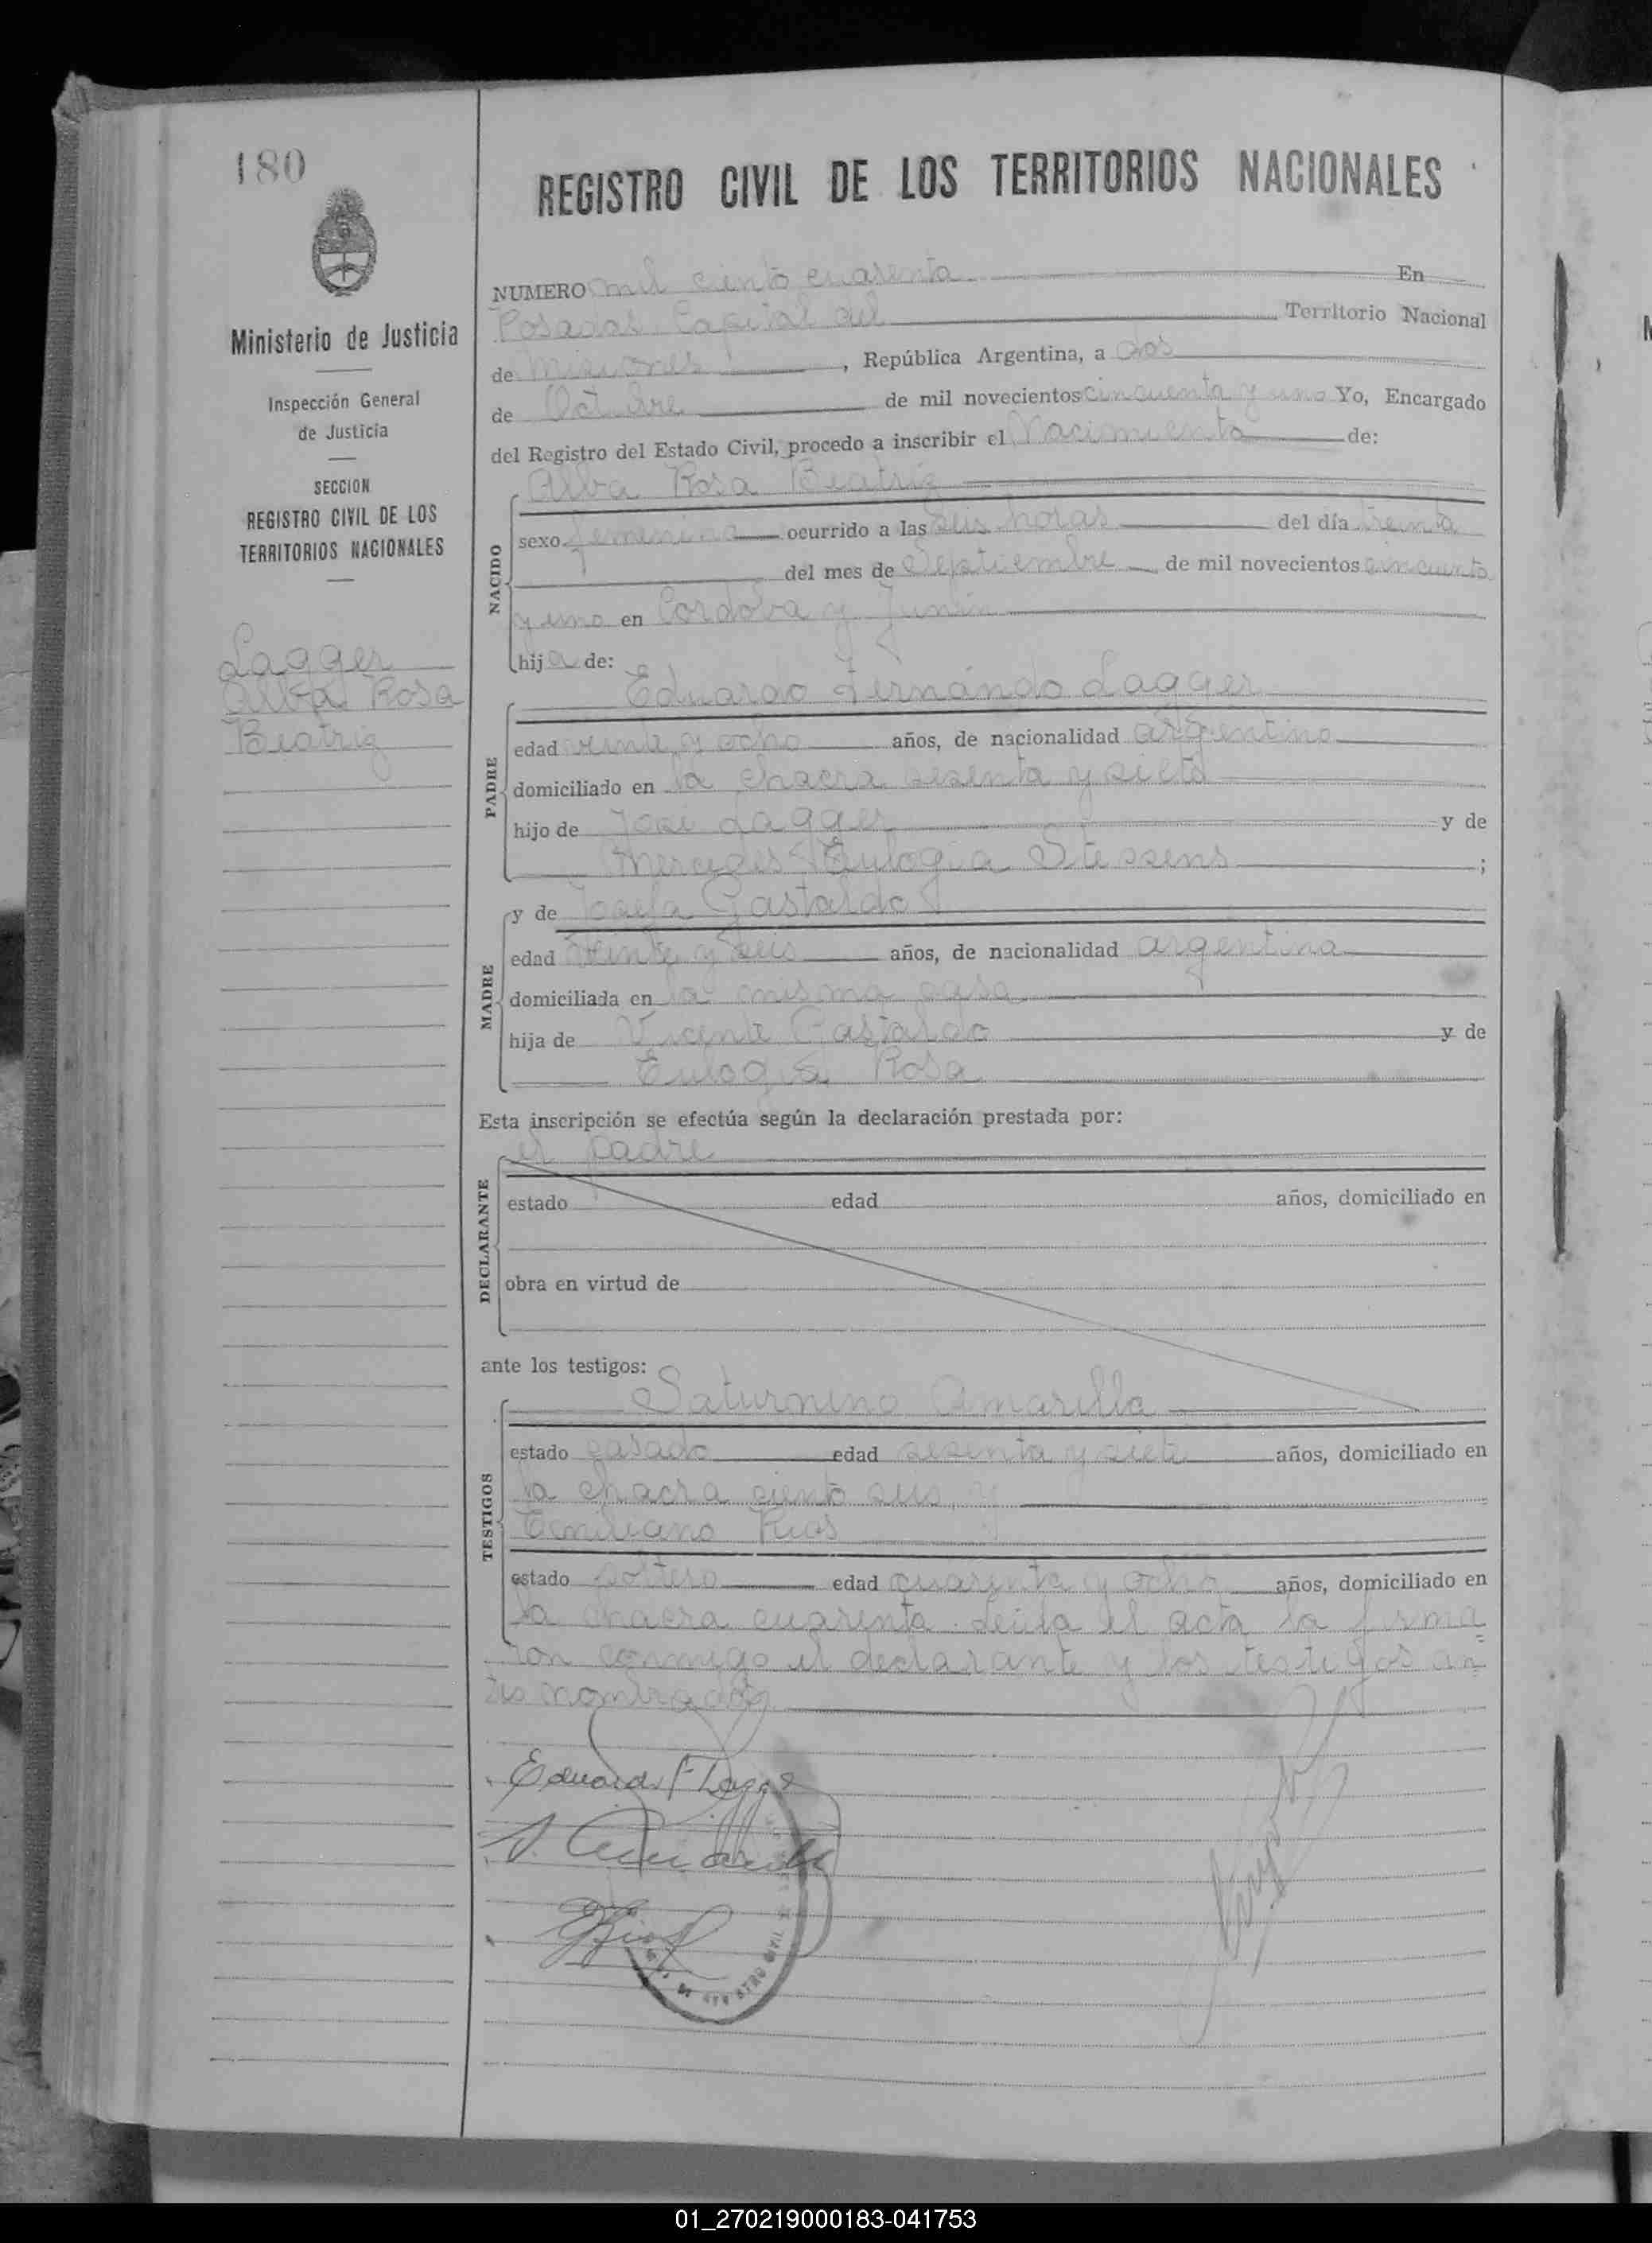 180
REGISTRO CIVIL DE LOS TERRITORIOS NACIONALES
Ministerio de Justicia
Inspección General
de Justicia
SECCION
REGISTRO CIVIL DE LOS
TERRITORIOS NACIONALES
Lagger
Alba Rosa
Beatriz
NUMERO mil ciento cuarenta En
Posadas Capital del Territorio Nacional
de Misiones, República Argentina, a dos
de Octubre de mil novecientos cincuenta y uno Yo, Encargado
del Registro del Estado Civil, procedo a inscribir el Nacimiento de:
NACIDO
Alba Rosa Beatriz
sexo femenino ocurrido a las seis horas del día treinta
del mes de Septiembre de mil novecientos cincuenta
y uno en Cordoba y Junín
hija de:
PADRE
Eduardo Fernando Lagger
edad veinte y ocho años, de nacionalidad argentino
domiciliado en la chacra sesenta y siete
hijo de José Lagger y de
Mercedes Eulogia Stessens;
MADRE
y de Josefa Gastaldo
edad veinte y seis años, de nacionalidad argentina
domiciliada en la misma casa
hija de Vicente Gastaldo y de
Eulogia Rosa
Esta inscripción se efectúa según la declaración prestada por:
DECLARANTE
el padre
estado edad años, domiciliado en
obra en virtud de
ante los testigos:
TESTIGOS
Saturnino Amarilla
estado casado edad sesenta y siete años, domiciliado en
la chacra ciento seis y
Emiliano Rios
estado soltero edad cuarenta y ocho años, domiciliado en
la chacra cuarenta. Leída el acta la firma
ron conmigo el declarante y los testigos an
tes nombrados
Eduardo F Lagger
S. Amarilla
E Rios
REGISTRO CIVIL
01_270219000183-041753